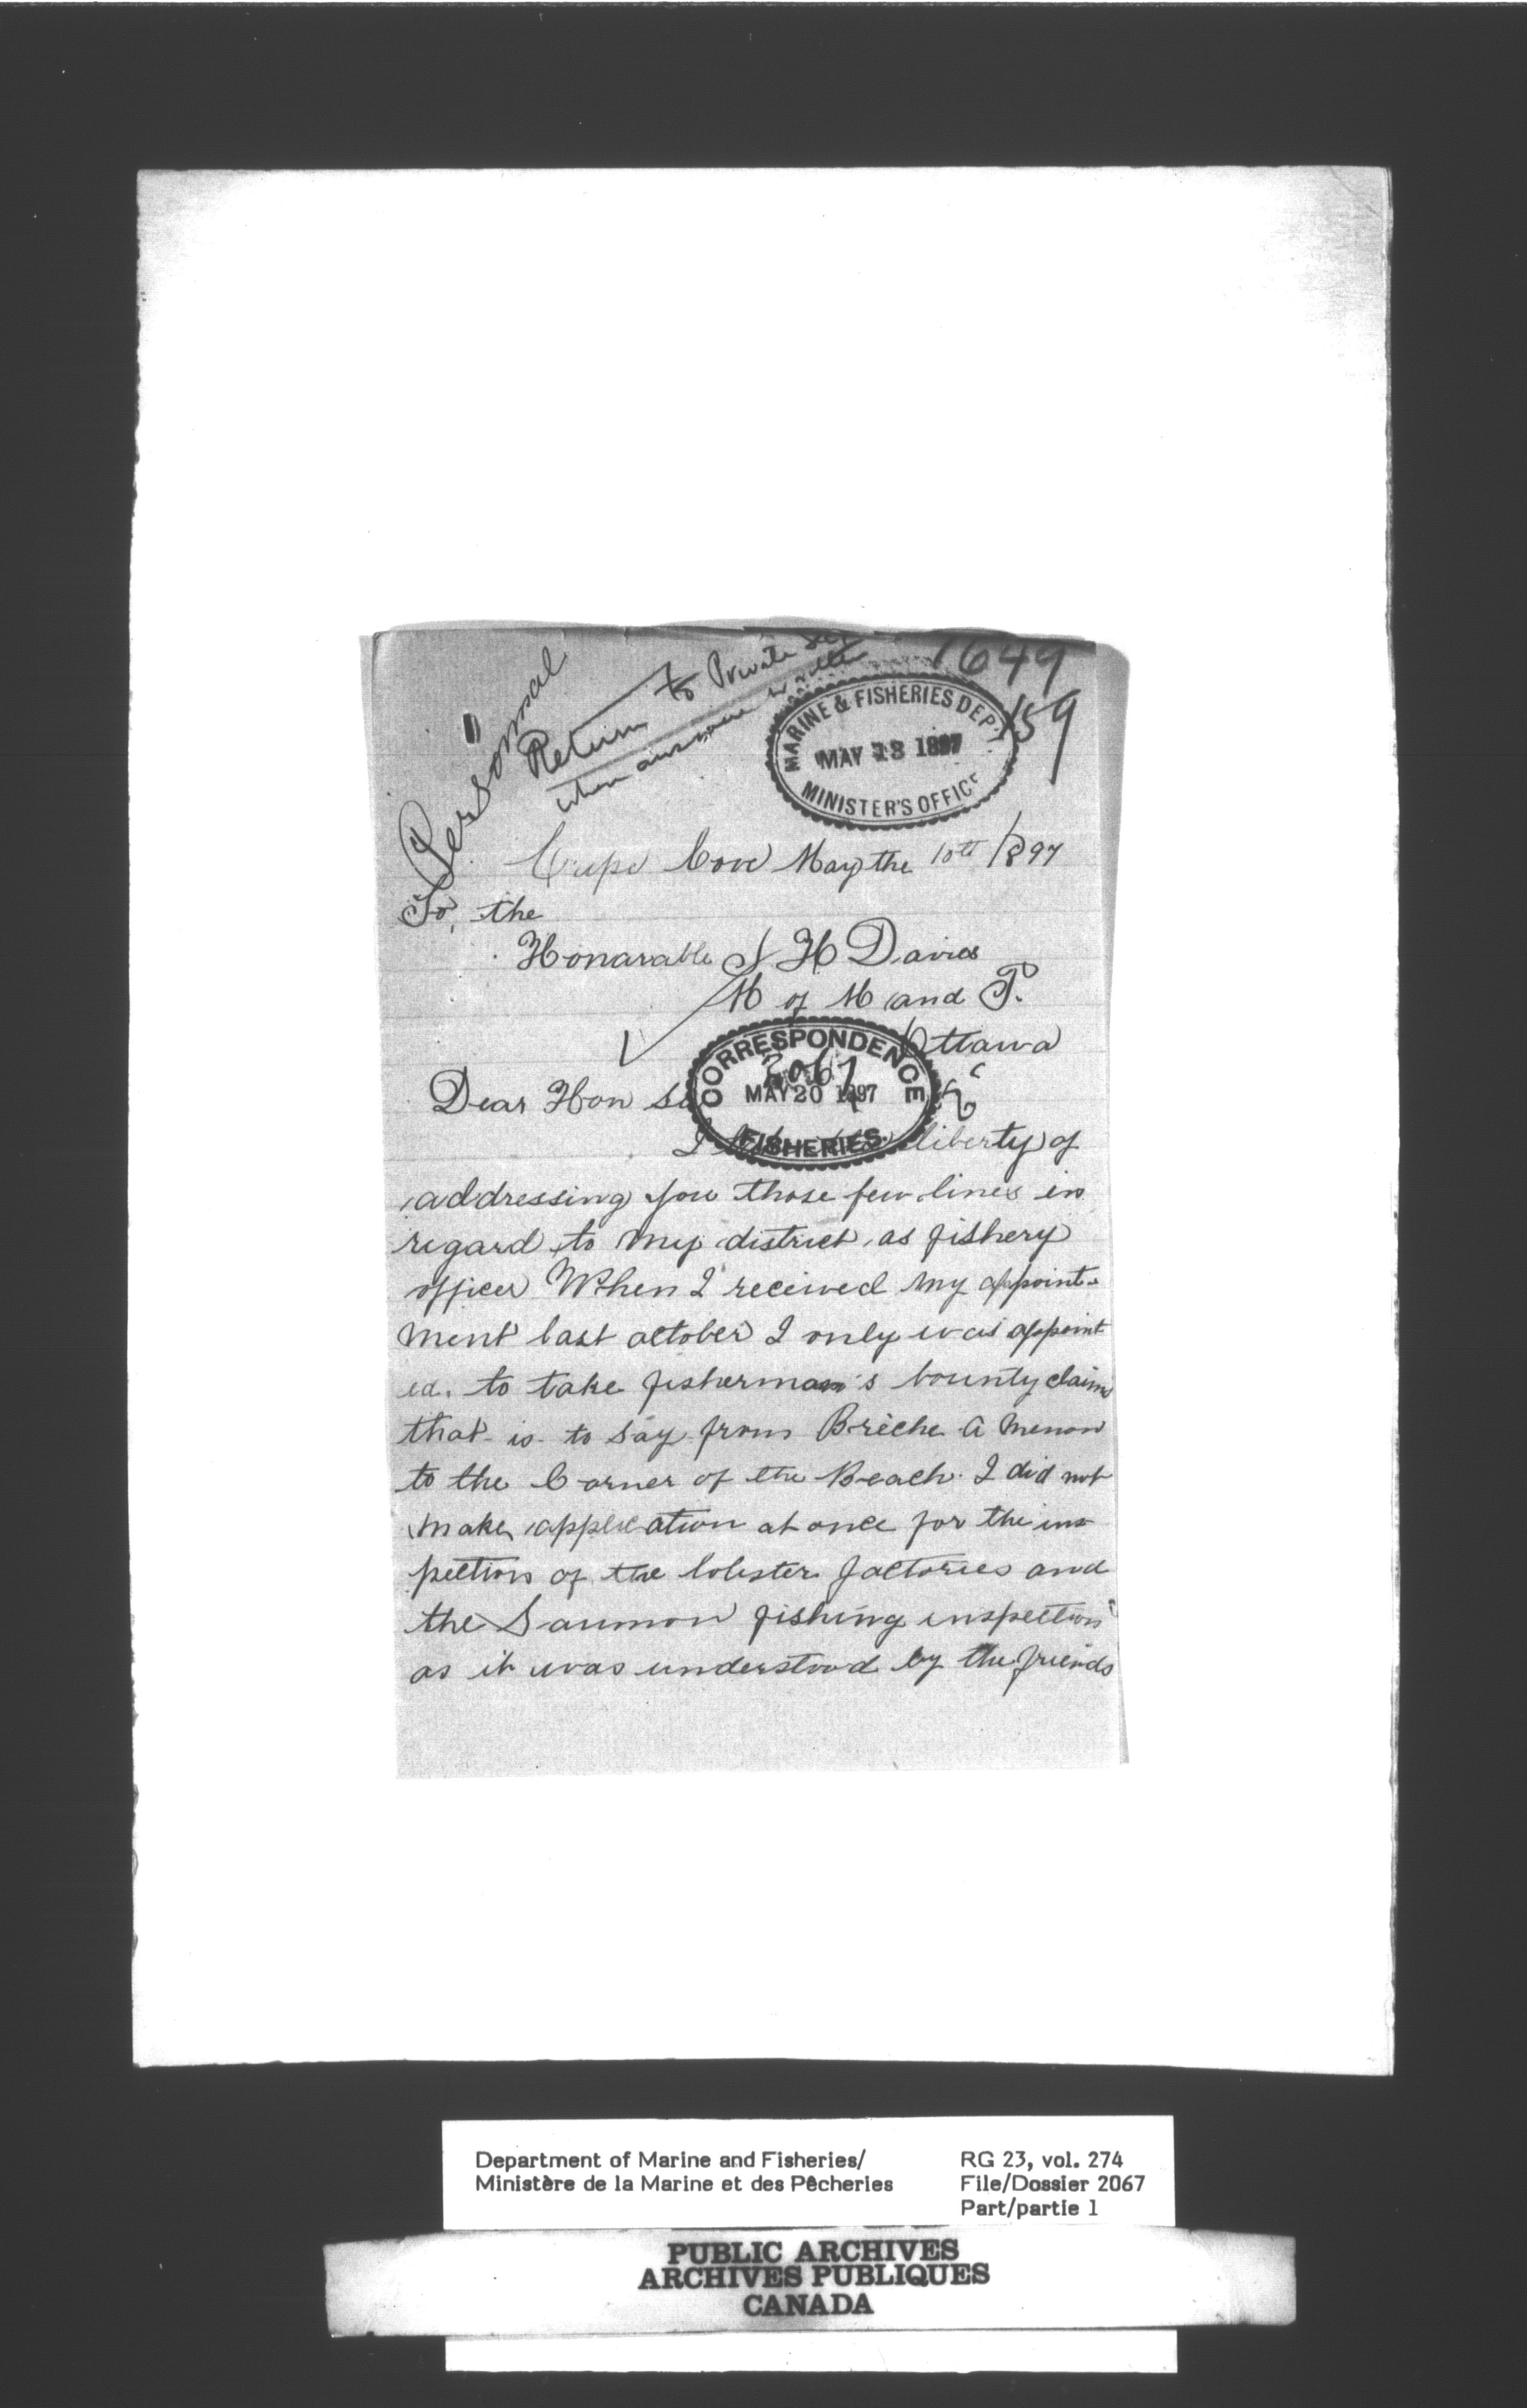 Personal
Return to Private Sec
when answer written
1649
159
MARINE & FISHERIES DEP.
MAY 18 1897
MINISTER'S OFFICE
Cape Cove May the 10th 1897
To, the
Honarable L H Davies
M of M and F.
Ottawa
CORRESPONDENCE
2067
MAY 20 1897
FISHERIES.
Dear Hon Si
I liberty of
addressing you those few lines in
regard to my district as fishery
officer When I received my appoint-
ment last october I only was appoint
ed. to take fisherman's bounty claims
that is to say from Brèche a menon
to the Corner of the Beach. I did not
make application at once for the ins
pection of the lobster factories and
the Saumon fishing inspection
as it was understood by the friends
Department of Marine and Fisheries/
Ministère de la Marine et des Pêcheries
RG 23, vol. 274
File/Dossier 2067
Part/partie 1
PUBLIC ARCHIVES
ARCHIVES PUBLIQUES
CANADA